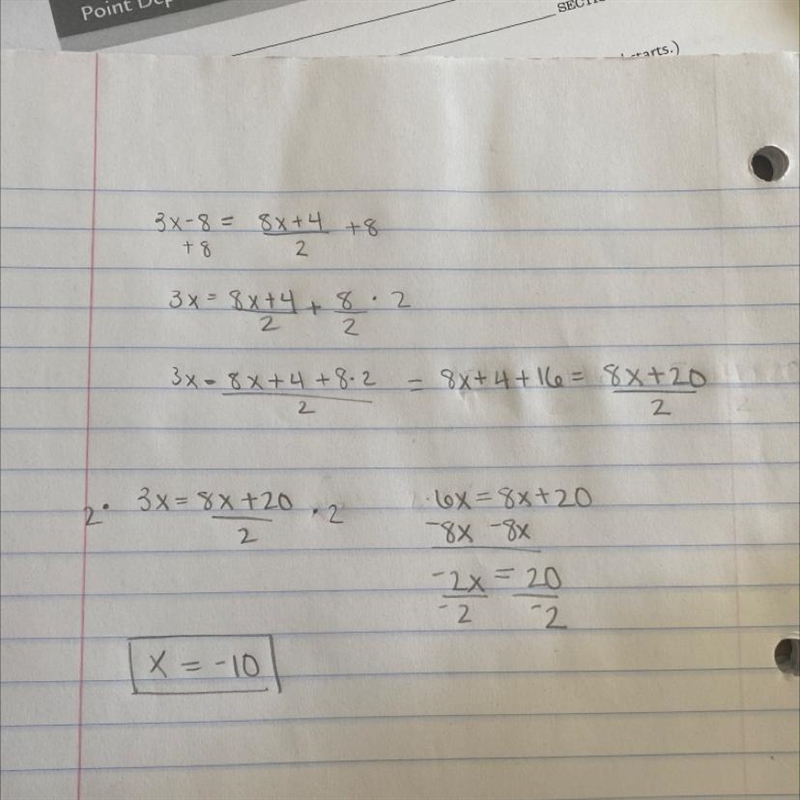 Point Dep
SECTI
starts.)
3x-8 = 8x+4/2 +8
+8
3x = 8x+4/2 + 8/2 · 2
3x - 8x+4+8·2/2 = 8x+4+16 = 8x+20/2
2· 3x = 8x+20/2 · 2
·6x = 8x+20
-8x -8x
-2x/-2 = 20/-2
x = -10